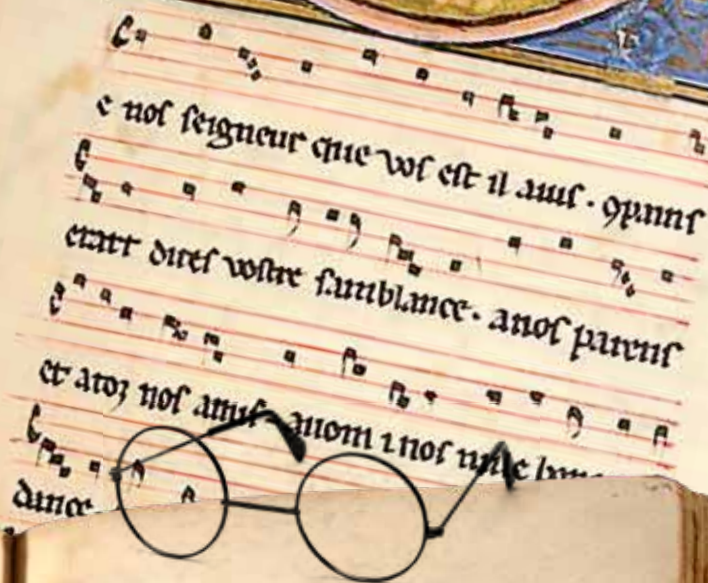 e nos seigneur que vos est il auis. 9pains
erart dites vostre samblance. a nos parens
et a toz nos amis auom i nos
dance